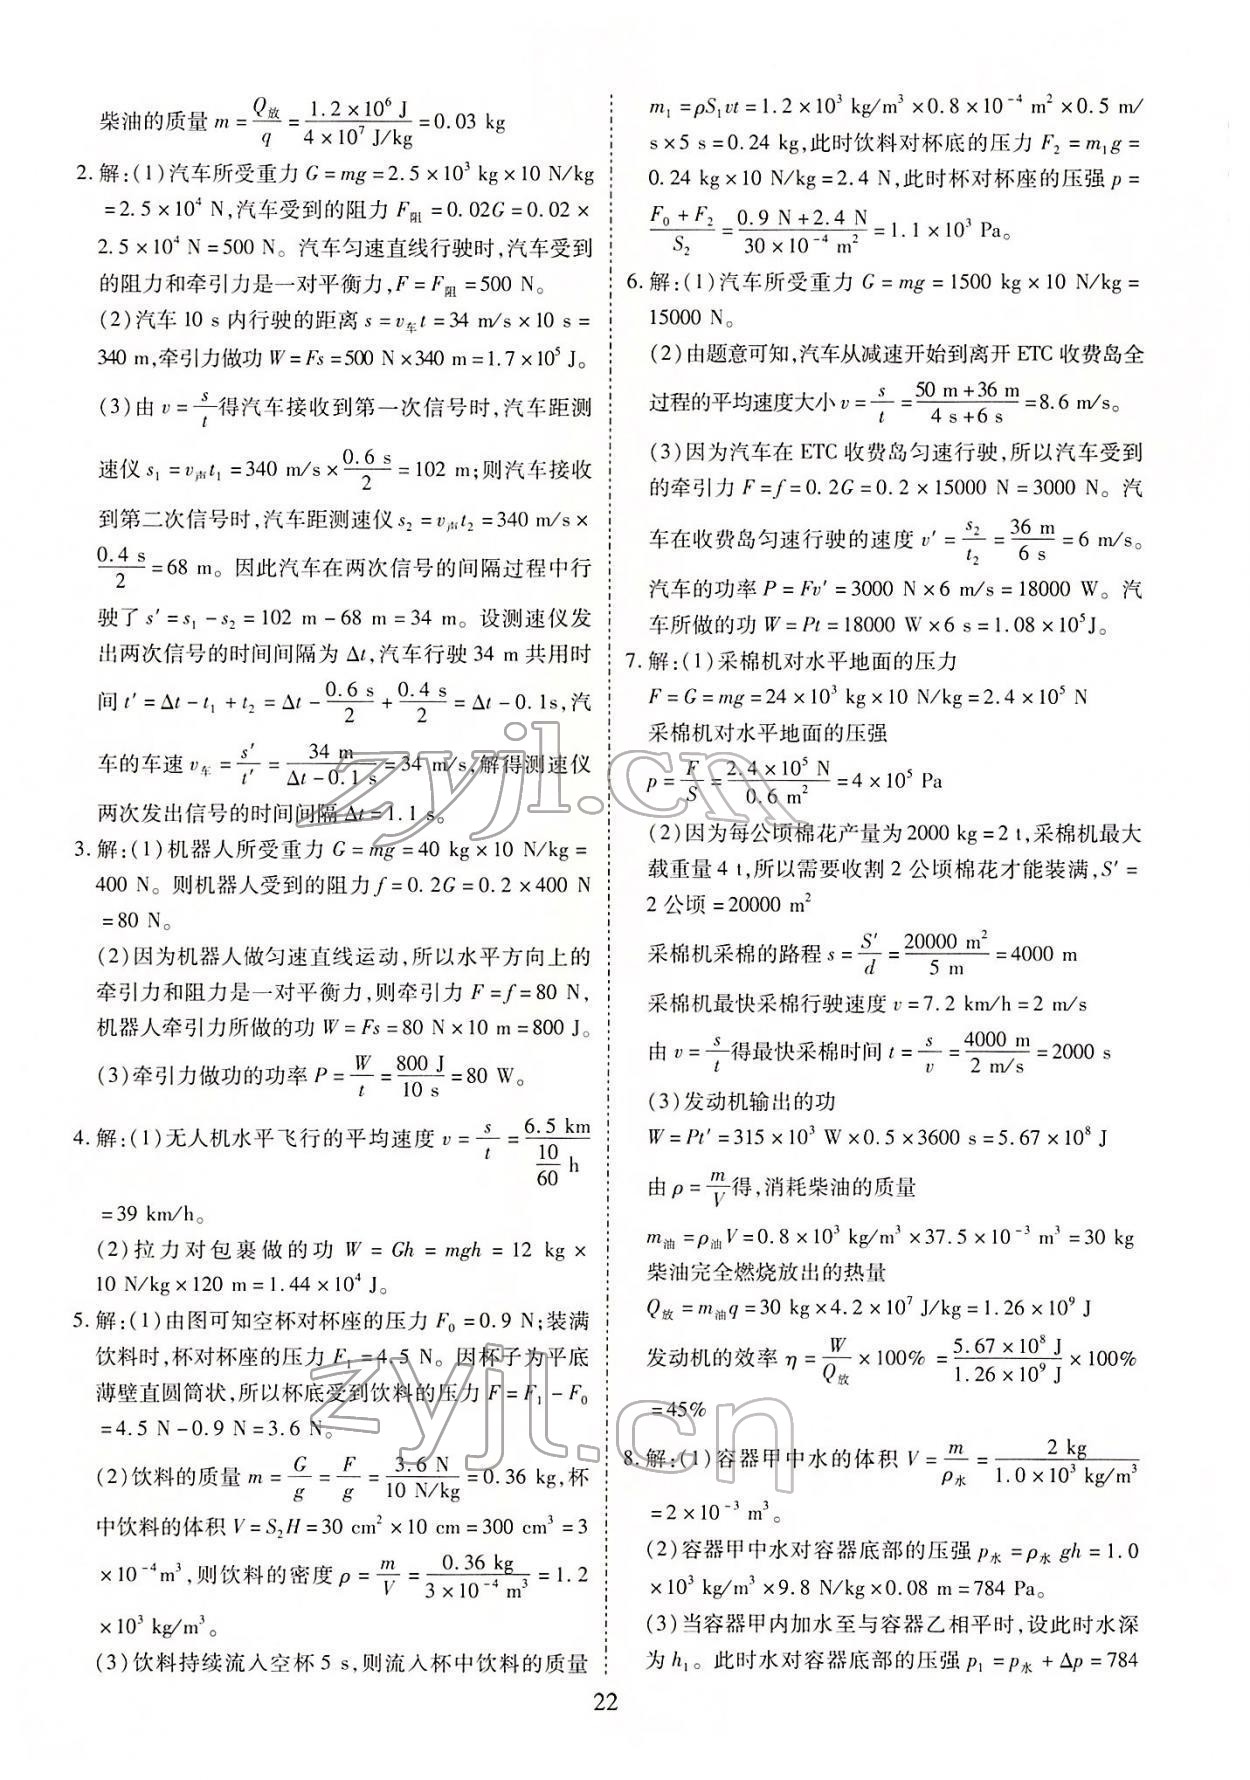 柴油的质量 m = Q放/q = 1.2×10⁶ J / 4×10⁷ J/kg = 0.03 kg
2. 解:(1)汽车所受重力 G=mg=2.5×10³ kg×10 N/kg
=2.5×10⁴ N,汽车受到的阻力 F阻=0.02G=0.02×
2.5×10⁴ N=500 N。汽车匀速直线行驶时,汽车受到
的阻力和牵引力是一对平衡力,F=F阻=500 N。
(2)汽车 10 s 内行驶的距离 s=v车t=34 m/s×10 s=
340 m,牵引力做功 W=Fs=500 N×340 m=1.7×10⁵ J。
(3)由 v=s/t 得汽车接收到第一次信号时,汽车距测
速仪 s₁=v声t₁=340 m/s×0.6 s/2=102 m;则汽车接收
到第二次信号时,汽车距测速仪 s₂=v声t₂=340 m/s×
0.4 s/2=68 m。因此汽车在两次信号的间隔过程中行
驶了 s′=s₁-s₂=102 m-68 m=34 m。设测速仪发
出两次信号的时间间隔为 Δt,汽车行驶 34 m 共用时
间 t′=Δt-t₁+t₂=Δt-0.6 s/2+0.4 s/2=Δt-0.1s,汽
车的车速 v车=s′/t′=34 m/(Δt-0.1 s)=34 m/s,解得测速仪
两次发出信号的时间间隔 Δt=1.1 s。
3. 解:(1)机器人所受重力 G=mg=40 kg×10 N/kg=
400 N。则机器人受到的阻力 f=0.2G=0.2×400 N
=80 N。
(2)因为机器人做匀速直线运动,所以水平方向上的
牵引力和阻力是一对平衡力,则牵引力 F=f=80 N,
机器人牵引力所做的功 W=Fs=80 N×10 m=800 J。
(3)牵引力做功的功率 P=W/t=800 J/10 s=80 W。
4. 解:(1)无人机水平飞行的平均速度 v=s/t=6.5 km/(10/60 h)
=39 km/h。
(2)拉力对包裹做的功 W=Gh=mgh=12 kg×
10 N/kg×120 m=1.44×10⁴ J。
5. 解:(1)由图可知空杯对杯座的压力 F₀=0.9 N;装满
饮料时,杯对杯座的压力 F₁=4.5 N。因杯子为平底
薄壁直圆筒状,所以杯底受到饮料的压力 F=F₁-F₀
=4.5 N-0.9 N=3.6 N。
(2)饮料的质量 m=G/g=F/g=3.6 N/10 N/kg=0.36 kg,杯
中饮料的体积 V=S₂H=30 cm²×10 cm=300 cm³=3
×10⁻⁴m³,则饮料的密度 ρ=m/V=0.36 kg/3×10⁻⁴ m³=1.2
×10³ kg/m³。
(3)饮料持续流入空杯 5 s,则流入杯中饮料的质量
m₁=ρS₁vt=1.2×10³ kg/m³×0.8×10⁻⁴ m²×0.5 m/
s×5 s=0.24 kg,此时饮料对杯底的压力 F₂=m₁g=
0.24 kg×10 N/kg=2.4 N,此时杯对杯座的压强 p=
(F₀+F₂)/S₂=(0.9 N+2.4 N)/30×10⁻⁴ m²=1.1×10³ Pa。
6. 解:(1)汽车所受重力 G=mg=1500 kg×10 N/kg=
15000 N。
(2)由题意可知,汽车从减速开始到离开 ETC 收费岛全
过程的平均速度大小 v=s/t=(50 m+36 m)/(4 s+6 s)=8.6 m/s。
(3)因为汽车在 ETC 收费岛匀速行驶,所以汽车受到
的牵引力 F=f=0.2G=0.2×15000 N=3000 N。汽
车在收费岛匀速行驶的速度 v′=s₂/t₂=36 m/6 s=6 m/s。
汽车的功率 P=Fv′=3000 N×6 m/s=18000 W。汽
车所做的功 W=Pt=18000 W×6 s=1.08×10⁵J。
7. 解:(1)采棉机对水平地面的压力
F=G=mg=24×10³ kg×10 N/kg=2.4×10⁵ N
采棉机对水平地面的压强
p=F/S=2.4×10⁵ N/0.6 m²=4×10⁵ Pa
(2)因为每公顷棉花产量为2000 kg=2 t,采棉机最大
载重量 4 t,所以需要收割 2 公顷棉花才能装满,S′=
2 公顷=20000 m²
采棉机采棉的路程 s=S′/d=20000 m²/5 m=4000 m
采棉机最快采棉行驶速度 v=7.2 km/h=2 m/s
由 v=s/t 得最快采棉时间 t=s/v=4000 m/2 m/s=2000 s
(3)发动机输出的功
W=Pt′=315×10³ W×0.5×3600 s=5.67×10⁸ J
由 ρ=m/V 得,消耗柴油的质量
m油=ρ油V=0.8×10³ kg/m³×37.5×10⁻³ m³=30 kg
柴油完全燃烧放出的热量
Q放=m油q=30 kg×4.2×10⁷ J/kg=1.26×10⁹ J
发动机的效率 η=W/Q放×100%=5.67×10⁸ J/1.26×10⁹ J×100%
=45%
8. 解:(1)容器甲中水的体积 V=m/ρ水=2 kg/1.0×10³ kg/m³
=2×10⁻³ m³。
(2)容器甲中水对容器底部的压强 p水=ρ水 gh=1.0
×10³ kg/m³×9.8 N/kg×0.08 m=784 Pa。
(3)当容器甲内加水至与容器乙相平时,设此时水深
为 h₁。此时水对容器底部的压强 p₁=p水+Δp=784
22
zyjl.cn
zyjl.cn